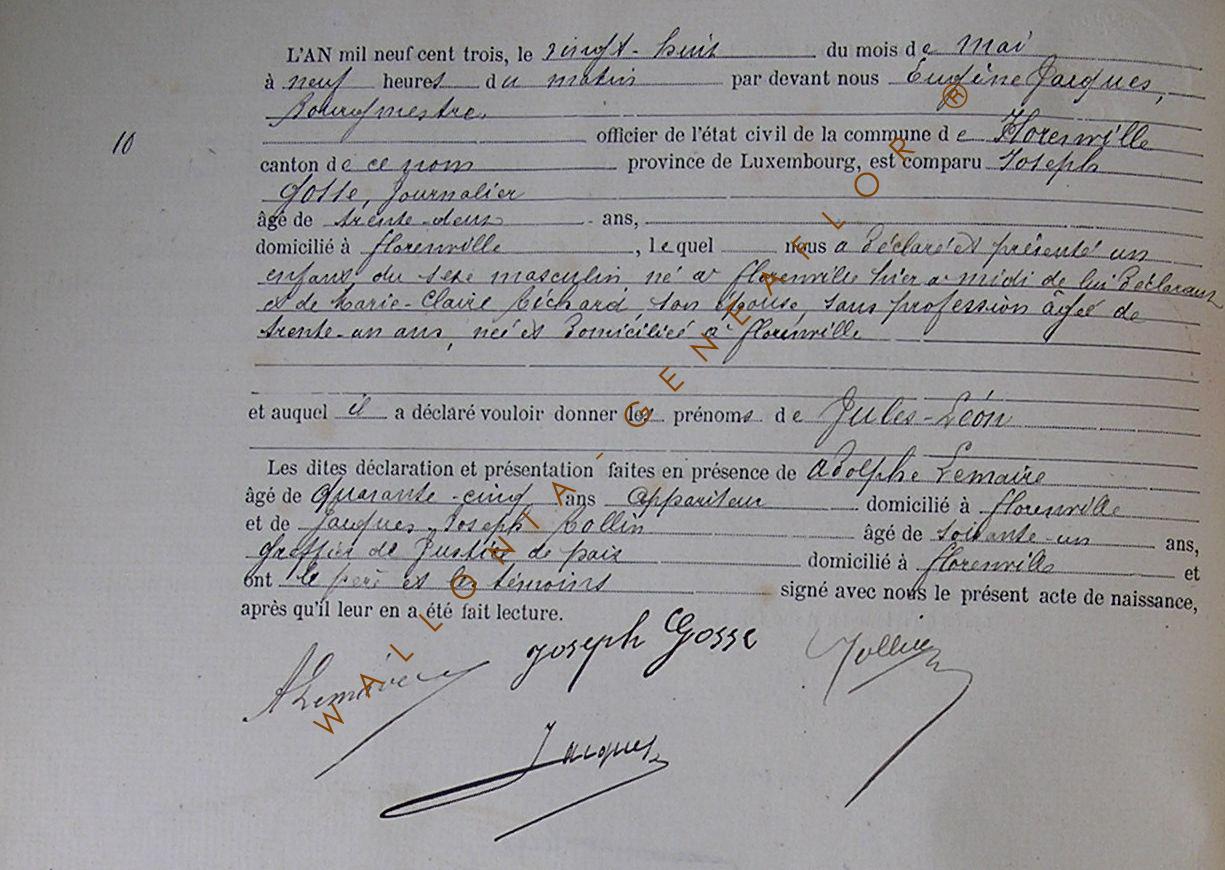 L'AN mil neuf cent trois, le vingt-huit du mois de mai
à neuf heures du matin par devant nous Eugène Jacques,
Bourgmestre,
10
officier de l'état civil de la commune de Florenville
canton de ce nom province de Luxembourg, est comparu Joseph
Gosse, journalier
âgé de trente-deux ans,
domicilié à florenville, lequel nous a déclaré et présenté un
enfant du sexe masculin, né à florenville hier à midi de lui déclarant
et de Marie-Claire Béchard, son épouse, sans profession âgée de
trente-un ans, née et domiciliée à florenville
et auquel il a déclaré vouloir donner les prénoms de Jules-Léon
Les dites déclaration et présentation faites en présence de Adolphe Lemaire
âgé de quarante-cinq ans appariteur domicilié à florenville
et de Jacques Joseph Collin âgé de soixante-un ans,
greffier de Justice de paix domicilié à florenville et
ont le père et les témoins signé avec nous le présent acte de naissance,
après qu'il leur en a été fait lecture.
ALemaire Joseph Gosse JCollin
Jacques
WALLONIA - GENEAFLOR ®